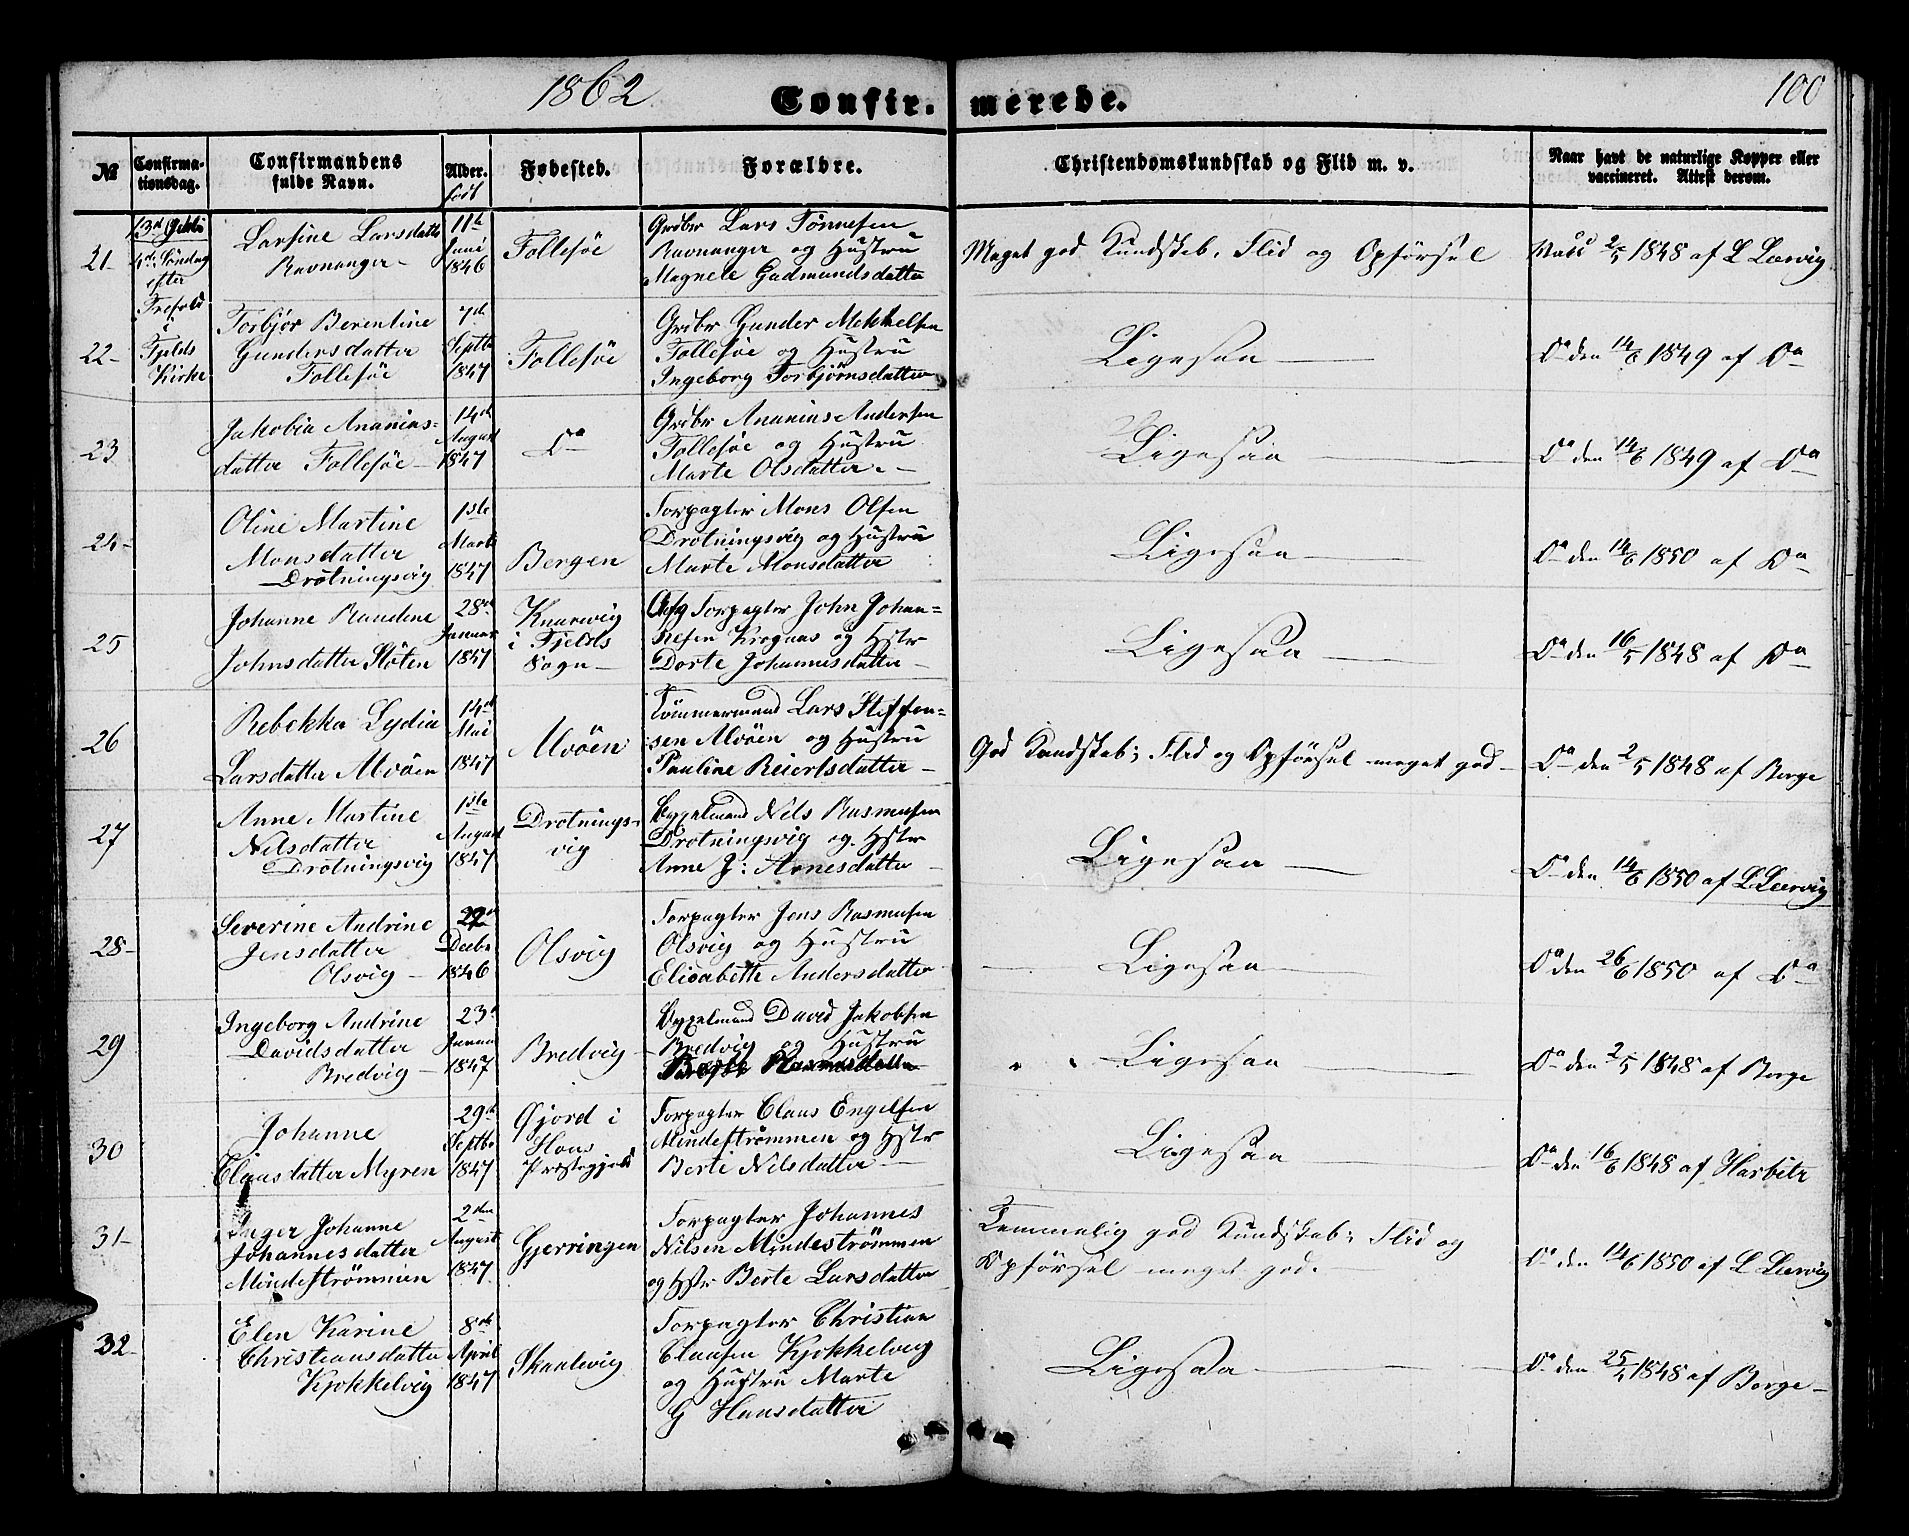 1862 Confirmerede. 100
№ Confirmationsdag. Confirmandens fulde Navn. Alder. født Fødested. Forældre. Christendomskundskab og Flid m. v. Naar havt de naturlige Kopper eller vaccineret. Attest derom.
21
4de Søndag
efter
Trefold
i
Fjelds
Kirke
Larsine Larsdatter
Ravnanger
11te
Juni
1846
Follesøe
Grdbr Lars Tønnesen
Ravnanger og Hustru
Magnele Gudmundsdatter
Meget god Kundskab, Flid og Opførsel
Vacc 2/5 1848 af L Lærvig
22
Torbjør Berentine
Gundersdatter
Follesøe
7de
Septbr
1847
Follesøe
Grdbr Gunder Mekkelsen
Follesøe og Hustru
Ingeborg Torbjørnsdatter
Ligesaa
Do den 14/6 1849 af Do
23
Jakobia Ananias-
datter Follesøe
14de
August
1847
Do
Grdbr Ananias Andersen
Follesøe og Hustru
Marte Olsdatter
Ligesaa
Do den 14/6 1849 af Do
24
Oline Martine
Monsdatter
Drotningsvig
1ste
Marts
1847
Bergen
Forpagter Mons Olsen
Drotningsvig og Hustru
Marte Monsdatter
Ligesaa
Do den 14/6 1850 af Do
25
Johanne Randine
Johnsdatter Sløten
28de
Januar
1847
Knarrevig
i Fjelds
Sogn
Forpagter John Johan-
nesen Krognas og Hstr
Dorte Johannesdatter
Ligesaa
Do den 16/5 1848 af Do
26
Rebekka Lydia
Larsdatter Alvøen
14de
Mai
1847
Alvøen
Tømmermand Lars Steffen-
sen Alvøen og Hustru
Pauline Reiertsdatter
God Kundskab; Flid og Opførsel meget god
Do den 2/5 1848 af Borge
27
Anne Martine
Nilsdatter
Drotningsvig
1ste
August
1847
Drotnings-
vig
Byggelmand Nils Rasmusen
Drotningsvig og Hstr
Anne J: Arnesdatter
Ligesaa
Do den 14/6 1850 af L Lærvig
28
Severine Andrine
Jensdatter
Olsvig
Decbr
1846
Olsvig
Forpagter Jens Rasmusen
Olsvig og Hustru
Elisabeth Andersdatter
Ligesaa
Do den 26/6 1850 af Do
29
Ingeborg Andrine
Davidsdatter
Bredvig
23d
Januar
1847
Bredvig
Byggelmand David Jakobsen
Bredvig og Hustru
Rasmusdatter
Ligesaa
Do den 2/5 1848 af Borge
30
Johanne
Clausdatter Myren
29de
Septbr
1847
Gjord i
Hous
Prestegjeld
Forpagter Claus Engelsen
Mindestrømmen og Hstr
Berte Nilsdatter
Ligesaa
Do den 16/6 1848 af Harbitz
31
Inger Johanne
Johannesdatter
Mindestrømmen
2den
August
1847
Gjerringen
Forpagter Johannes
Nilsen Mindestrømmen
og Hstr Berte Larsdatter
Temmelig god Kundskab; Flid og
Opførsel meget god.
Do den 14/6 1850 af L Lærvig
32
Elen Karine
Christiansdatter
Kjøkkelvig
8de
April
1847
Skaalevig
Forpagter Christian
Clausen Kjøkkelvig
og Hustru Marte
G Hansdatter
Ligesaa
Do den 25/4 1848 af Borge